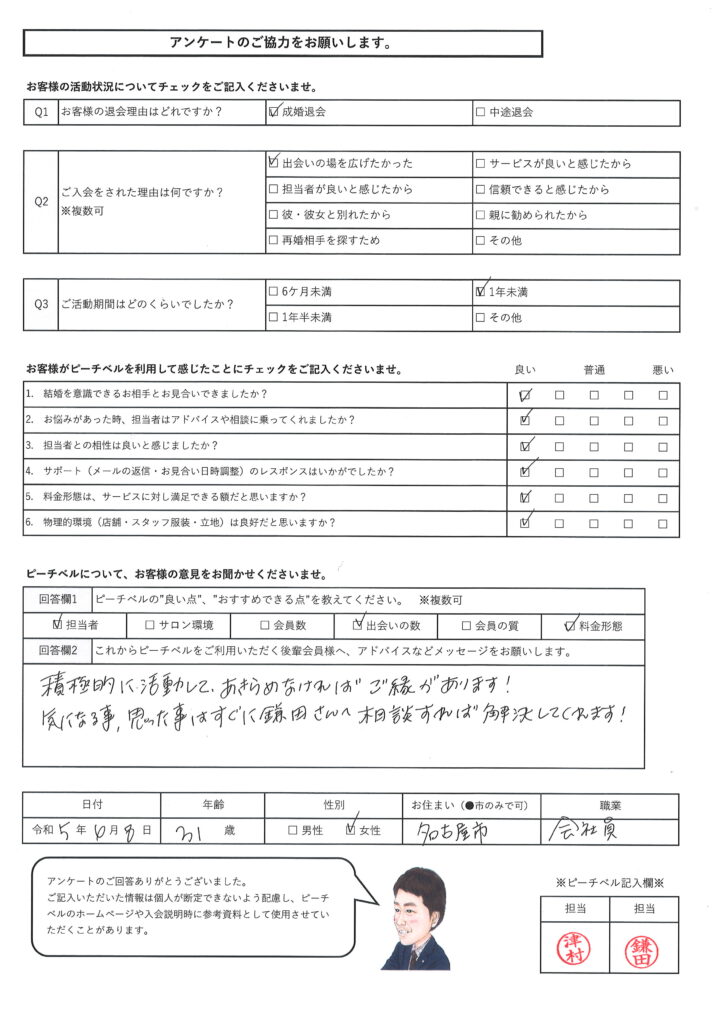 アンケートのご協力をお願いします。
お客様の活動状況についてチェックをご記入くださいませ。
Q1 お客様の退会理由はどれですか？ ☑ 成婚退会 □ 中途退会
Q2 ご入会をされた理由は何ですか？ ※複数可
☑ 出会いの場を広げたかった □ サービスが良いと感じたから
□ 担当者が良いと感じたから □ 信頼できると感じたから
□ 彼・彼女と別れたから □ 親に勧められたから
□ 再婚相手を探すため □ その他
Q3 ご活動期間はどのくらいでしたか？
□ 6ケ月未満 ☑ 1年未満
□ 1年半未満 □ その他
お客様がピーチベルを利用して感じたことにチェックをご記入くださいませ。 良い 普通 悪い
1. 結婚を意識できるお相手とお見合いできましたか？ ☑ □ □ □ □
2. お悩みがあった時、担当者はアドバイスや相談に乗ってくれましたか？ ☑ □ □ □ □
3. 担当者との相性は良いと感じましたか？ ☑ □ □ □ □
4. サポート（メールの返信・お見合い日時調整）のレスポンスはいかがでしたか？ ☑ □ □ □ □
5. 料金形態は、サービスに対し満足できる額だと思いますか？ ☑ □ □ □ □
6. 物理的環境（店舗・スタッフ服装・立地）は良好だと思いますか？ ☑ □ □ □ □
ピーチベルについて、お客様の意見をお聞かせくださいませ。
回答欄1 ピーチベルの"良い点"、"おすすめできる点"を教えてください。 ※複数可
☑ 担当者 □ サロン環境 □ 会員数 ☑ 出会いの数 □ 会員の質 ☑ 料金形態
回答欄2 これからピーチベルをご利用いただく後輩会員様へ、アドバイスなどメッセージをお願いします。
積極的に活動して、あきらめなければご縁があります！
気になる事，思った事はすぐに鎌田さんへ相談すれば解決してくれます！
日付 年齢 性別 お住まい（●市のみで可） 職業
令和 5 年 6 月 8 日 31 歳 □ 男性 ☑ 女性 名古屋市 会社員
アンケートのご回答ありがとうございました。
ご記入いただいた情報は個人が断定できないよう配慮し、ピーチ
ベルのホームページや入会説明時に参考資料として使用させてい
ただくことがあります。
※ピーチベル記入欄※
担当 担当
津村 鎌田